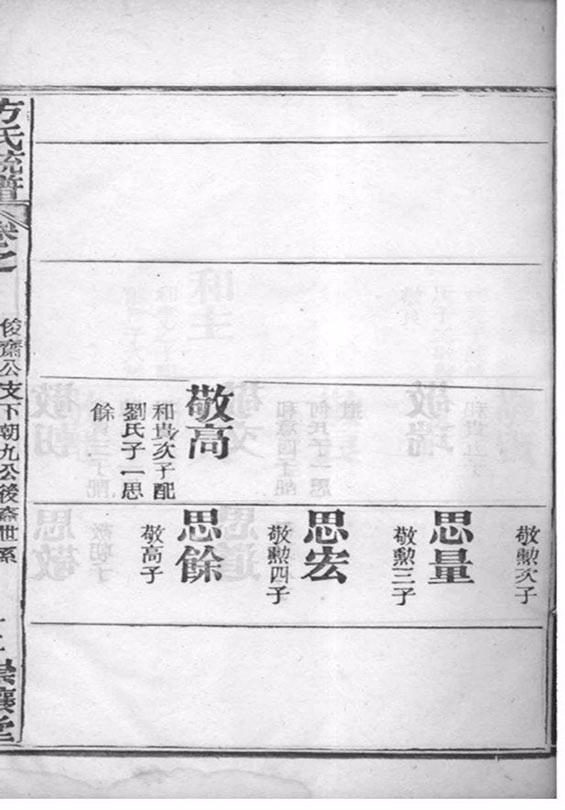 敬勲次子
思量
敬勲三子
思宏
敬勲四子
敬高
和貴次子配
劉氏子一思
餘
思餘
敬高子
方氏統譜
卷之
俊齋公支下朝九公後裔世系